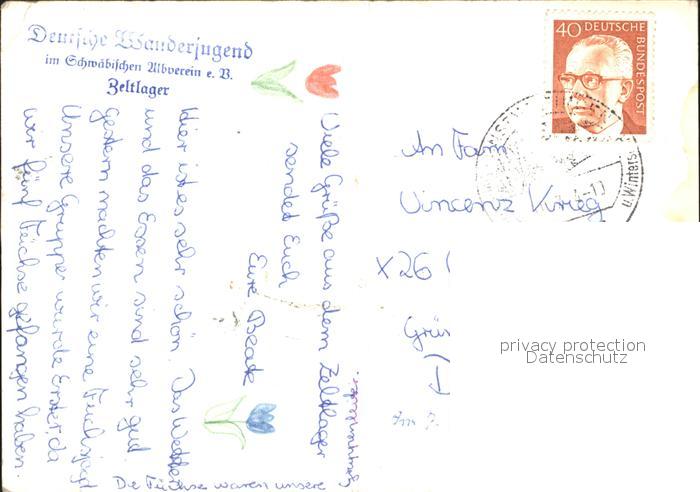 Deutsche Wanderjugend
im Schwäbischen Albverein e. V.
Zeltlager
Hier ist es sehr schön. Das Wetter
und das Essen sind sehr gut.
Gestern machten wir eine Fuchsjagd
Unsere Gruppe wurde Erster, da
wir fünf Füchse gefangen haben.
Die Füchse waren unsere
Viele Grüße aus dem Zeltlager
sendet Euch
Eure Beate
40 DEUTSCHE
BUNDESPOST
u. Winters
An Fam.
Vincenz Krieg
X26
privacy protection
Datenschutz